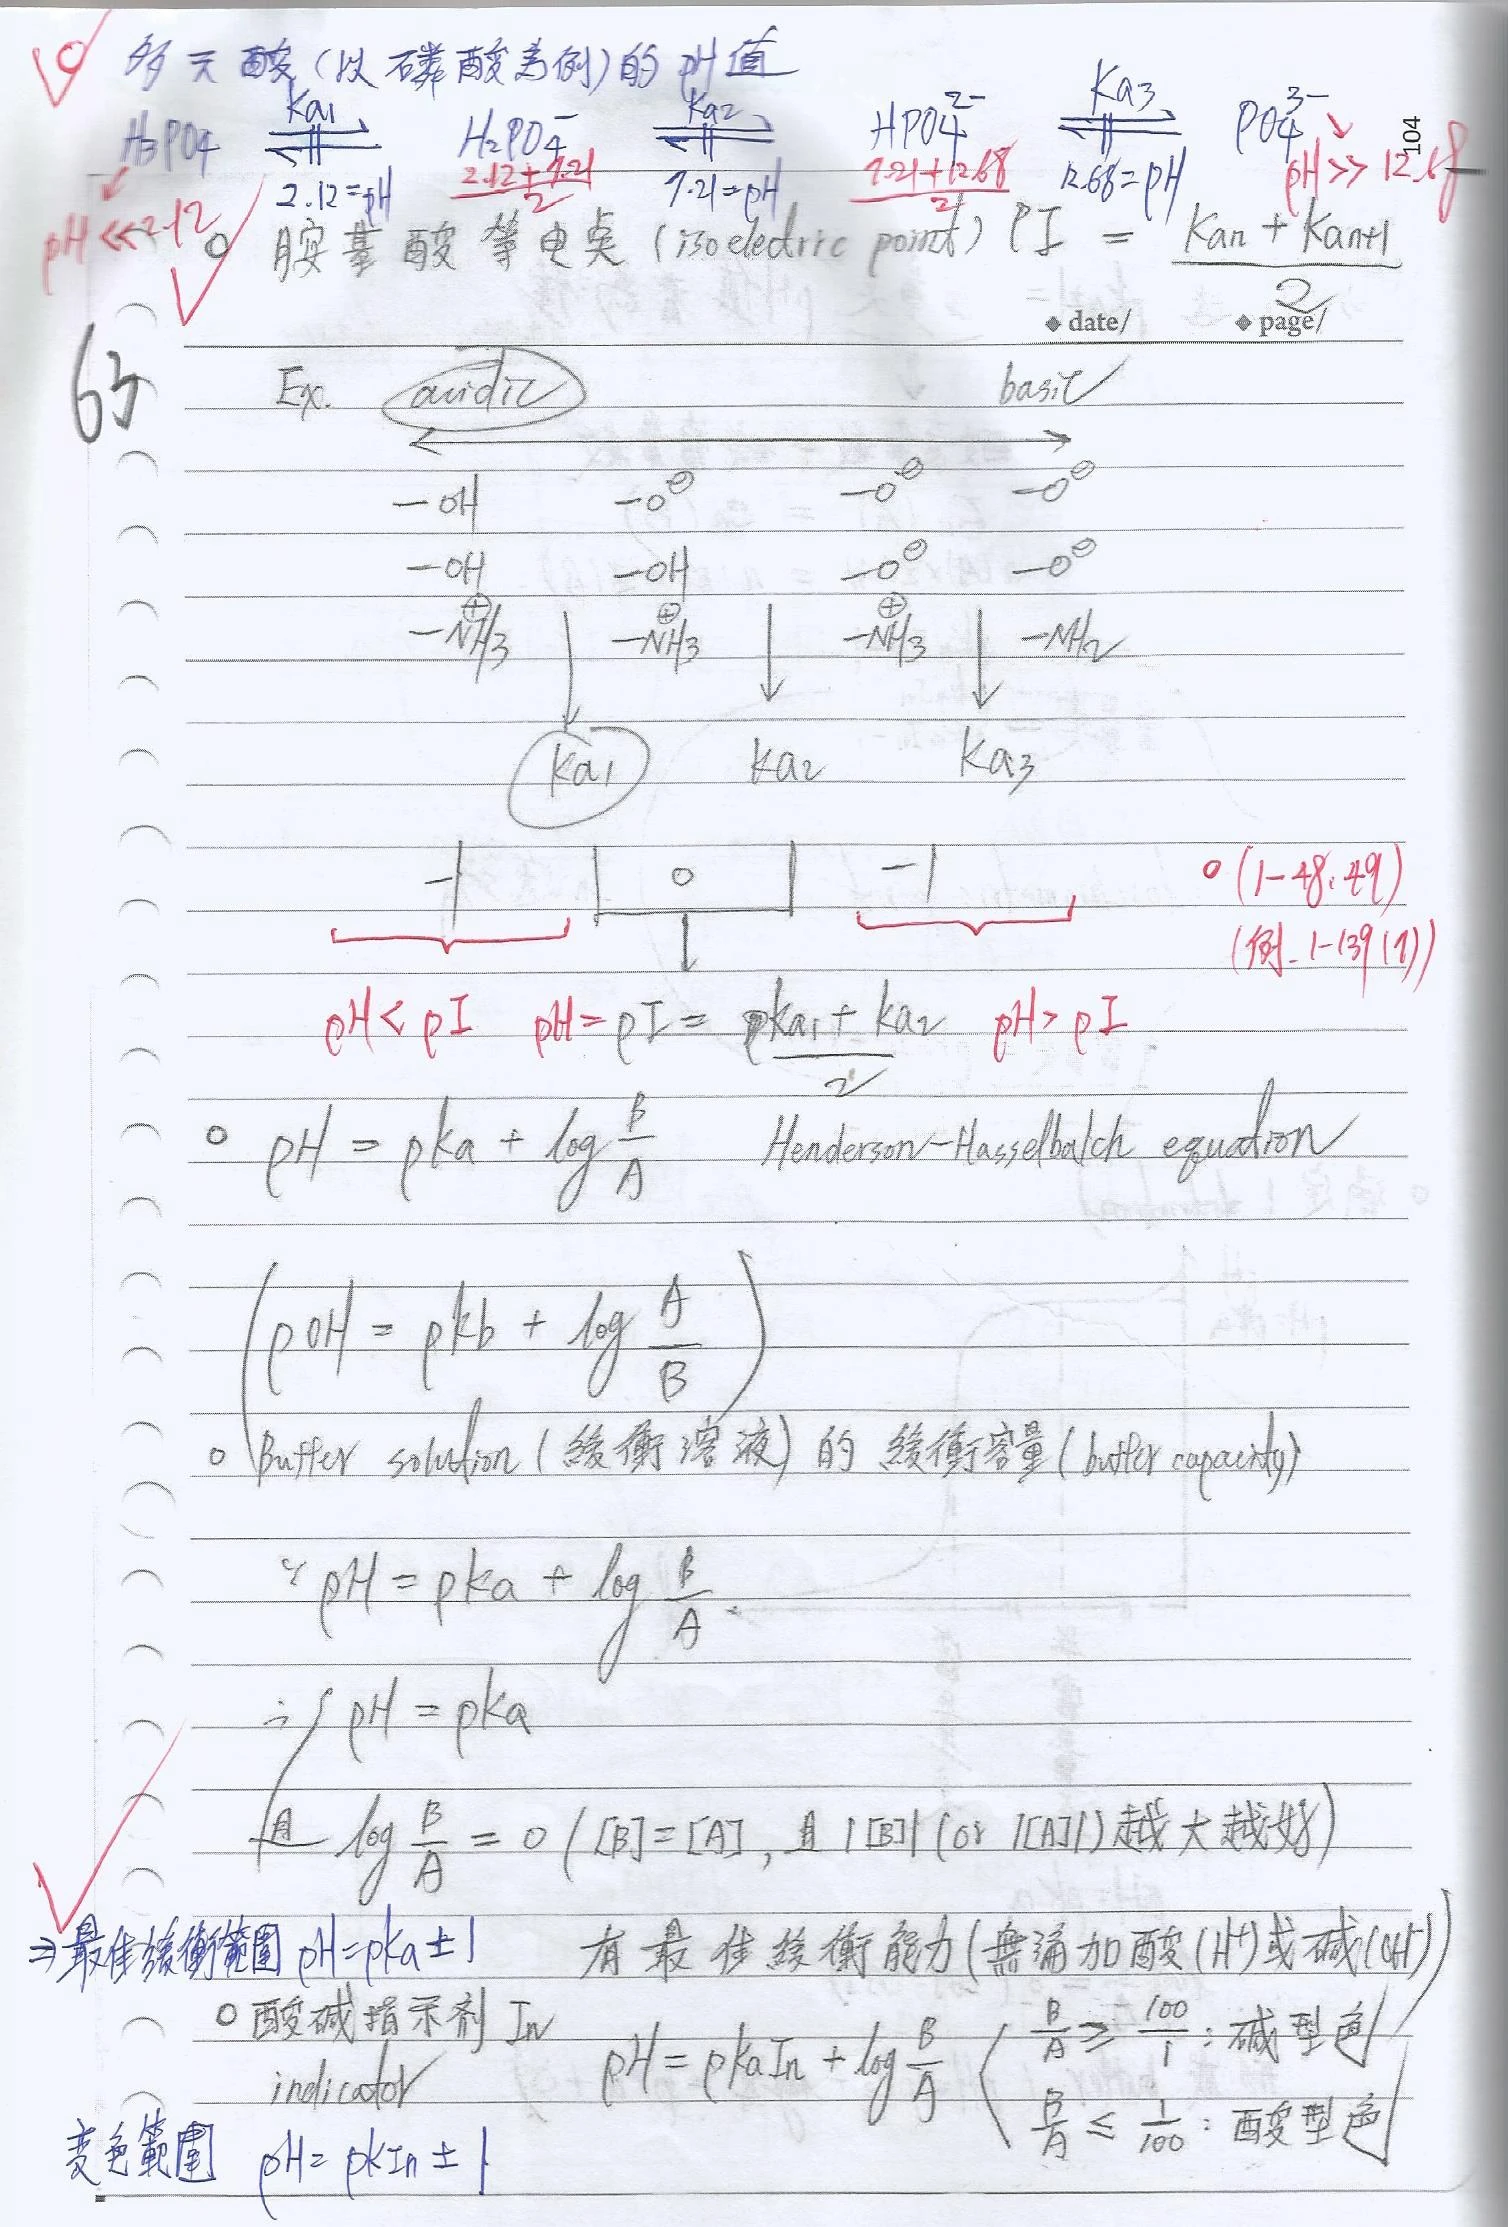 多元酸(以磷酸為例)的pH值
Ka1 Ka2 Ka3
H3PO4 ⇌ H2PO4⁻ ⇌ HPO4²⁻ ⇌ PO4³⁻
104
pH<<2.12 2.12=pH (2.12+7.21)/2 7.21=pH (7.21+12.68)/2 12.68=pH pH>>12.68
○ 胺基酸等电点(isoelectric point) PI = (Kan + Kan+1)/2
◆ date/ ◆ page/
63
Ex. acidic basic
-OH -O⊖ -O⊖ -O⊖
-OH -OH -O⊖ -O⊖
-NH3⊕ -NH3⊕ -NH3⊕ -NH2
Ka1 Ka2 Ka3
-1 0 -1 ○(1-48,49)
(例.1-139(7))
pH<pI pH=pI=(pka1+ka2)/2 pH>pI
○ pH = pka + log B/A Henderson-Hasselbalch equation
(pOH = pkb + log A/B)
○ Buffer solution(緩衝溶液)的緩衝容量(buffer capacity)
∵ pH = pka + log B/A
∴ pH = pka
且 log B/A = 0 ([B]=[A],且|[B]|(or |[A]|)越大越好)
⇒最佳緩衝範圍 pH=pka±1 有最佳緩衝能力(無論加酸(H⁺)或碱(OH⁻))
○ 酸碱指示剂 In
indicator
pH = pkaIn + log B/A
B/A ≥ 100/1 : 碱型色
B/A ≤ 1/100 : 酸型色
変色範圍 pH=pkIn±1